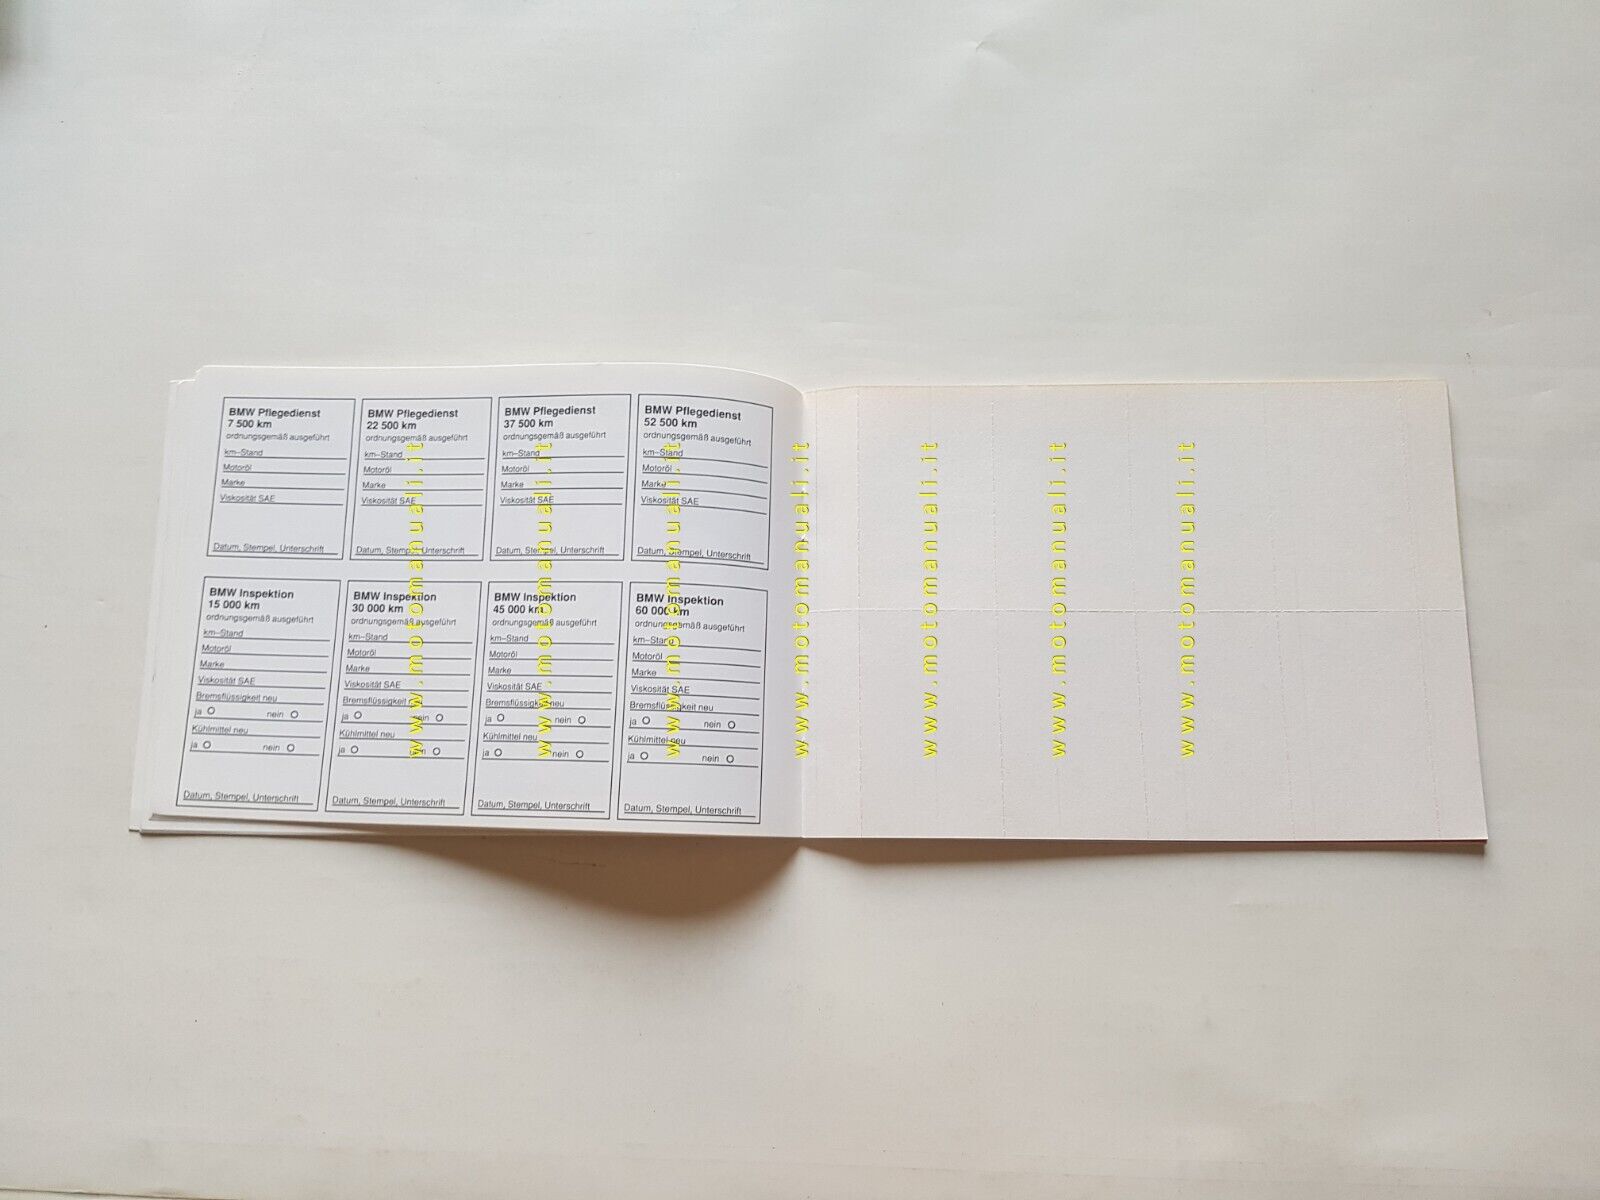 BMW Pflegedienst
7 500 km
ordnungsgemäß ausgeführt
km–Stand
Motoröl
Marke
Viskosität SAE
Datum, Stempel, Unterschrift
BMW Pflegedienst
22 500 km
ordnungsgemäß ausgeführt
km–Stand
Motoröl
Marke
Viskosität SAE
Datum, Stempel, Unterschrift
BMW Pflegedienst
37 500 km
ordnungsgemäß ausgeführt
km–Stand
Motoröl
Marke
Viskosität SAE
Datum, Stempel, Unterschrift
BMW Pflegedienst
52 500 km
ordnungsgemäß ausgeführt
km–Stand
Motoröl
Marke
Viskosität SAE
Datum, Stempel, Unterschrift
BMW Inspektion
15 000 km
ordnungsgemäß ausgeführt
km–Stand
Motoröl
Marke
Viskosität SAE
Bremsflüssigkeit neu
ja nein
Kühlmittel neu
ja nein
Datum, Stempel, Unterschrift
BMW Inspektion
30 000 km
ordnungsgemäß ausgeführt
km–Stand
Motoröl
Marke
Viskosität SAE
Bremsflüssigkeit neu
ja nein
Kühlmittel neu
ja nein
Datum, Stempel, Unterschrift
BMW Inspektion
45 000 km
ordnungsgemäß ausgeführt
km–Stand
Motoröl
Marke
Viskosität SAE
Bremsflüssigkeit neu
ja nein
Kühlmittel neu
ja nein
Datum, Stempel, Unterschrift
BMW Inspektion
60 000 km
ordnungsgemäß ausgeführt
km–Stand
Motoröl
Marke
Viskosität SAE
Bremsflüssigkeit neu
ja nein
Kühlmittel neu
ja nein
Datum, Stempel, Unterschrift
www.motomanuali.it
www.motomanuali.it
www.motomanuali.it
www.motomanuali.it
www.motomanuali.it
www.motomanuali.it
www.motomanuali.it